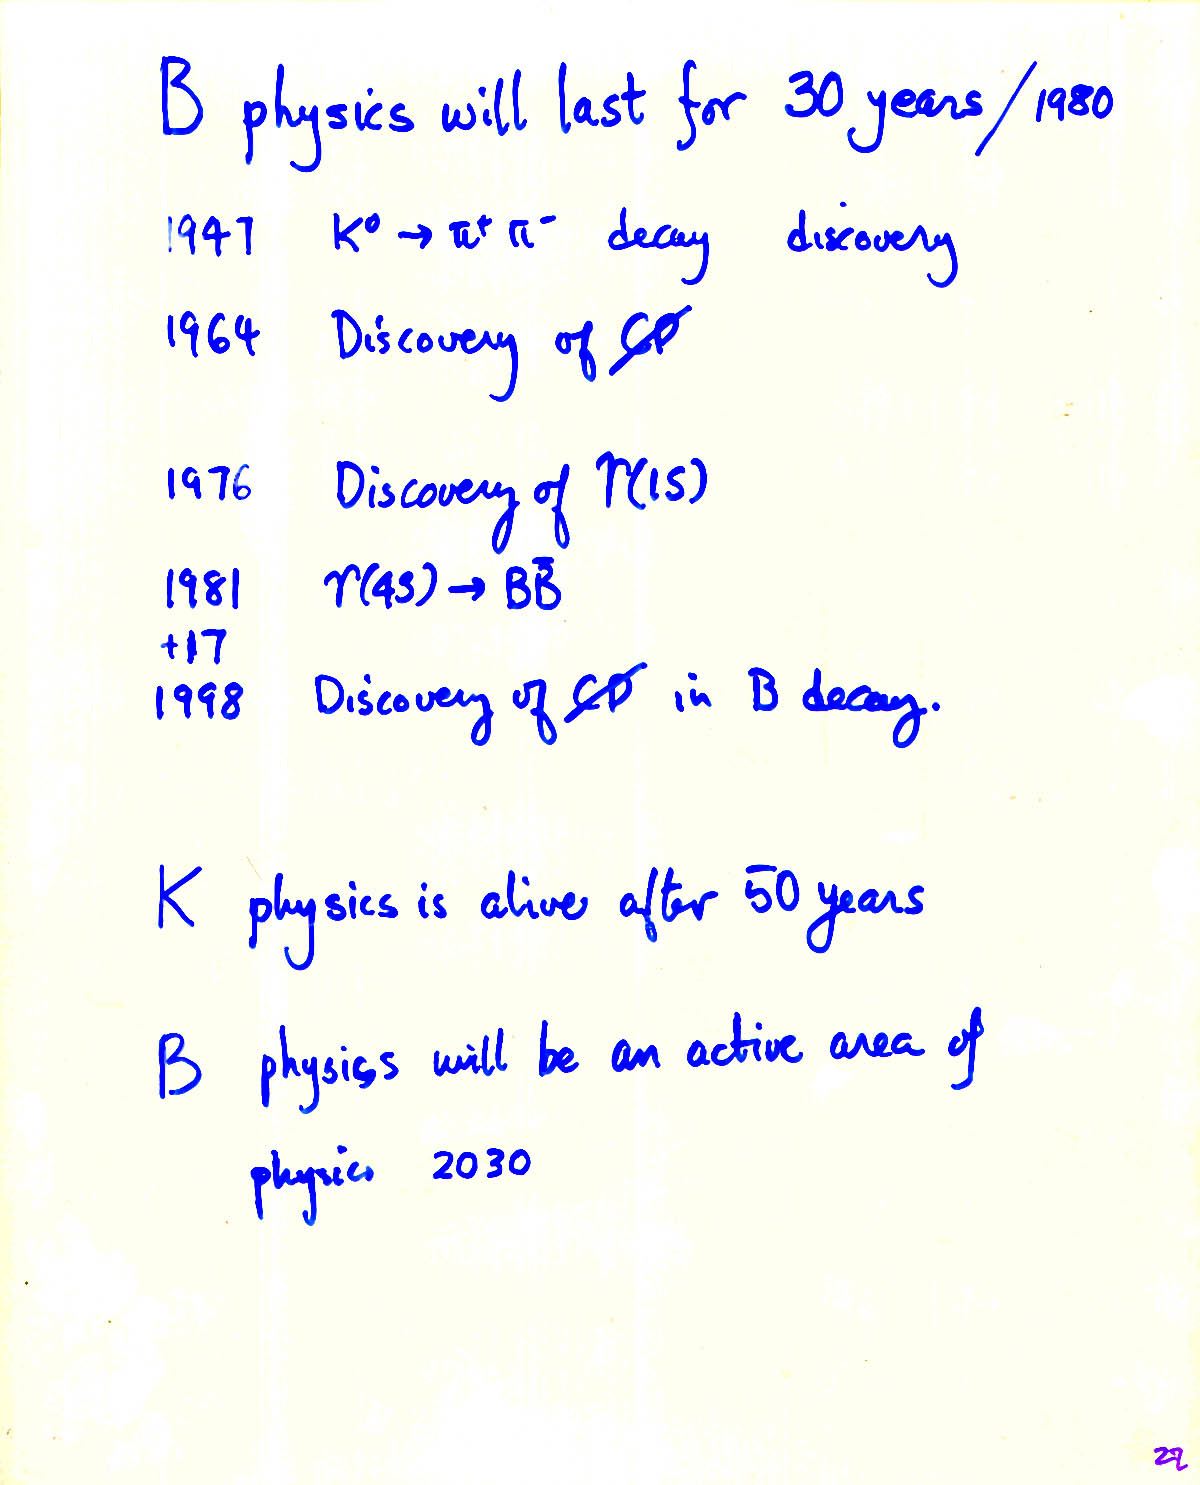 B physics will last for 30 years/1980
1947 K⁰ → π⁺ π⁻ decay discovery
1964 Discovery of C̸P̸
1976 Discovery of ϒ(1S)
1981 ϒ(4S) → BB̄
+17
1998 Discovery of C̸P̸ in B decay.
K physics is alive after 50 years
B physics will be an active area of
physics 2030